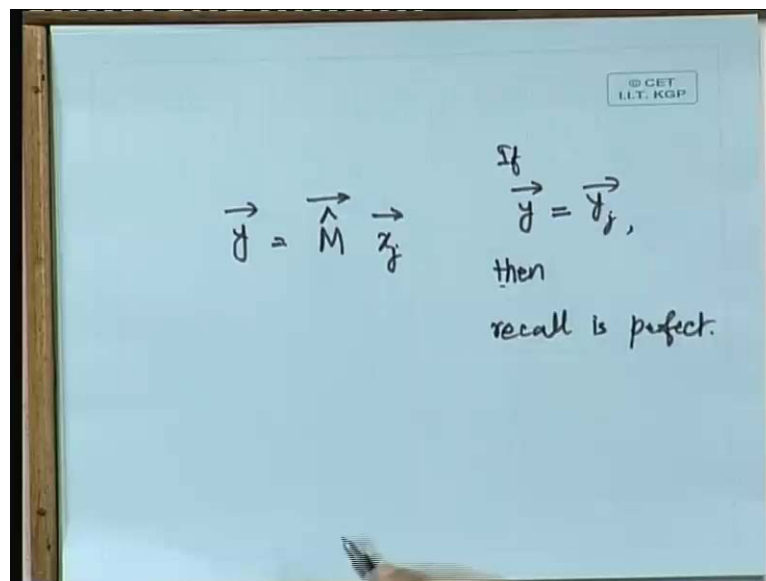 © CET
I.I.T. KGP
y⃗ = M̂⃗ x⃗ⱼ
If
y⃗ = y⃗ⱼ,
then
recall is perfect.